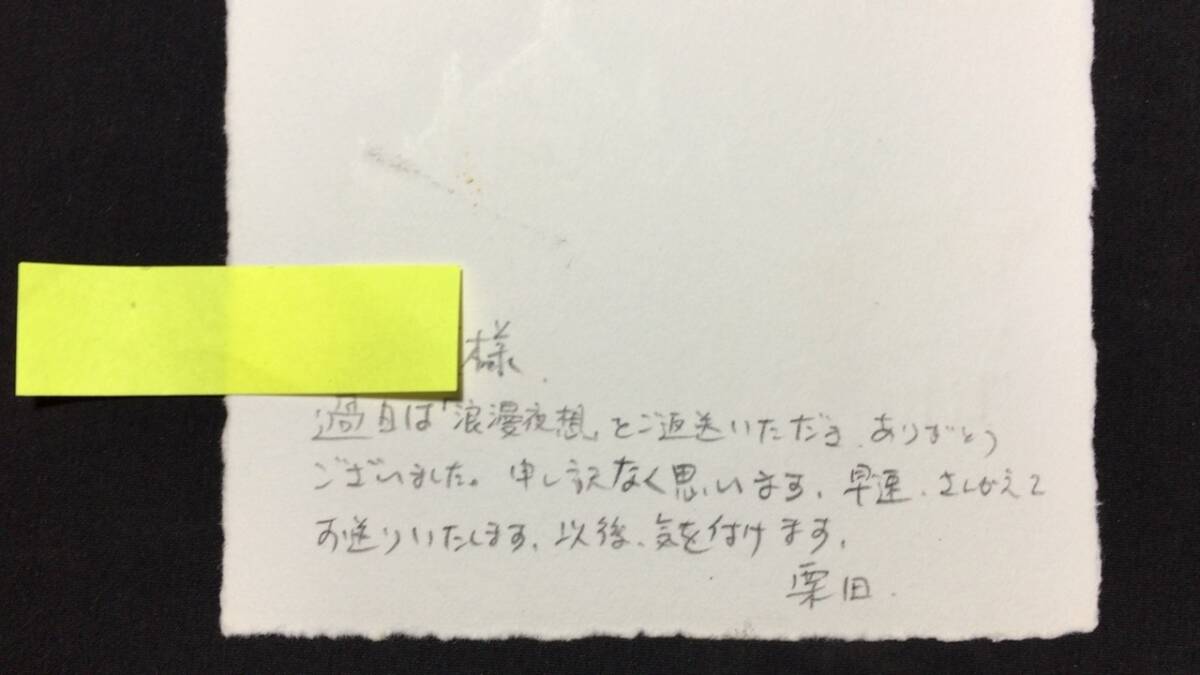 様
過日は「浪漫夜想」をご返送いただき、ありがとう
ございました。申し訳なく思います。早速、さしかえて
お送りいたします。以後、気を付けます。
栗田